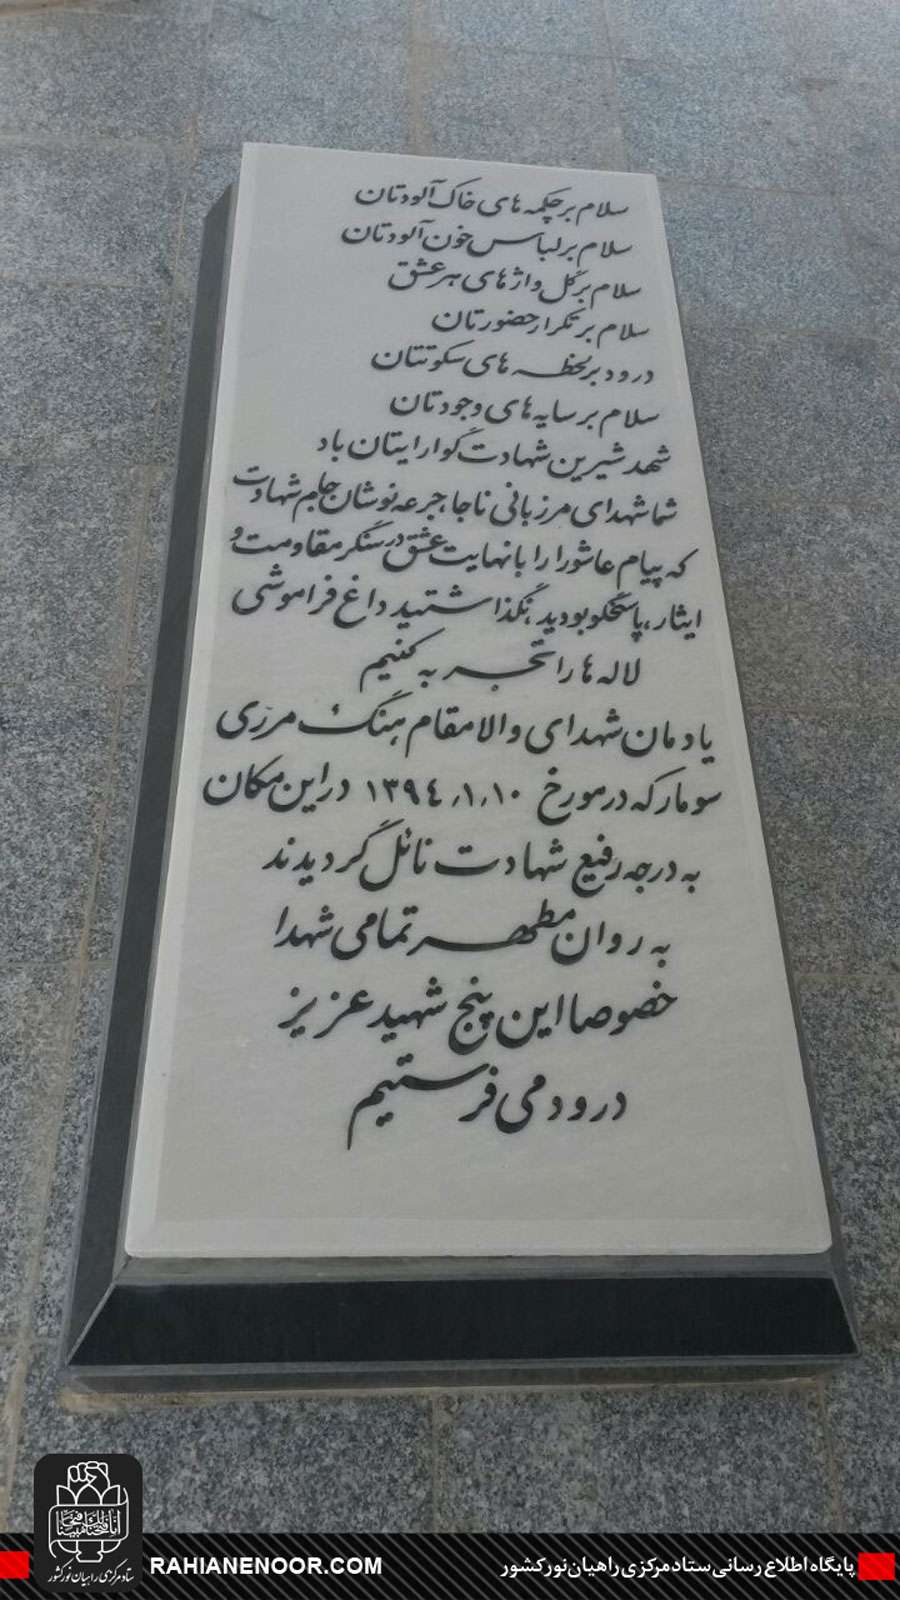 سلام بر چکمه های خاک آلودتان
سلام بر لباس خون آلودتان
سلام بر گل واژهای هر عشق
سلام بر تکرار حضورتان
درود بر لحظه های سکوتتان
سلام بر سایه های وجودتان
شهد شیرین شهادت گوارایتان باد
شما شهدای مرزبانی ناجا، جرعه نوشان جام شهادت
که پیام عاشورا را با نهایت عشق در سنگر مقاومت و
ایثار، پاسخگو بودید، نگذاشتید داغ فراموشی
لاله ها را تجربه کنیم
یادمان شهدای والامقام هنگ مرزی
سومار که در مورخ ۱۳۹٤٫۱٫۱۰ در این مکان
به درجه رفیع شهادت نائل گردیدند
به روان مطهر تمامی شهدا
خصوصا این پنج شهید عزیز
درود می فرستیم
انا فتحنا لک فتحا مبینا
ستاد مرکزی راهیان نور کشور
RAHIANENOOR.COM
پایگاه اطلاع رسانی ستاد مرکزی راهیان نور کشور